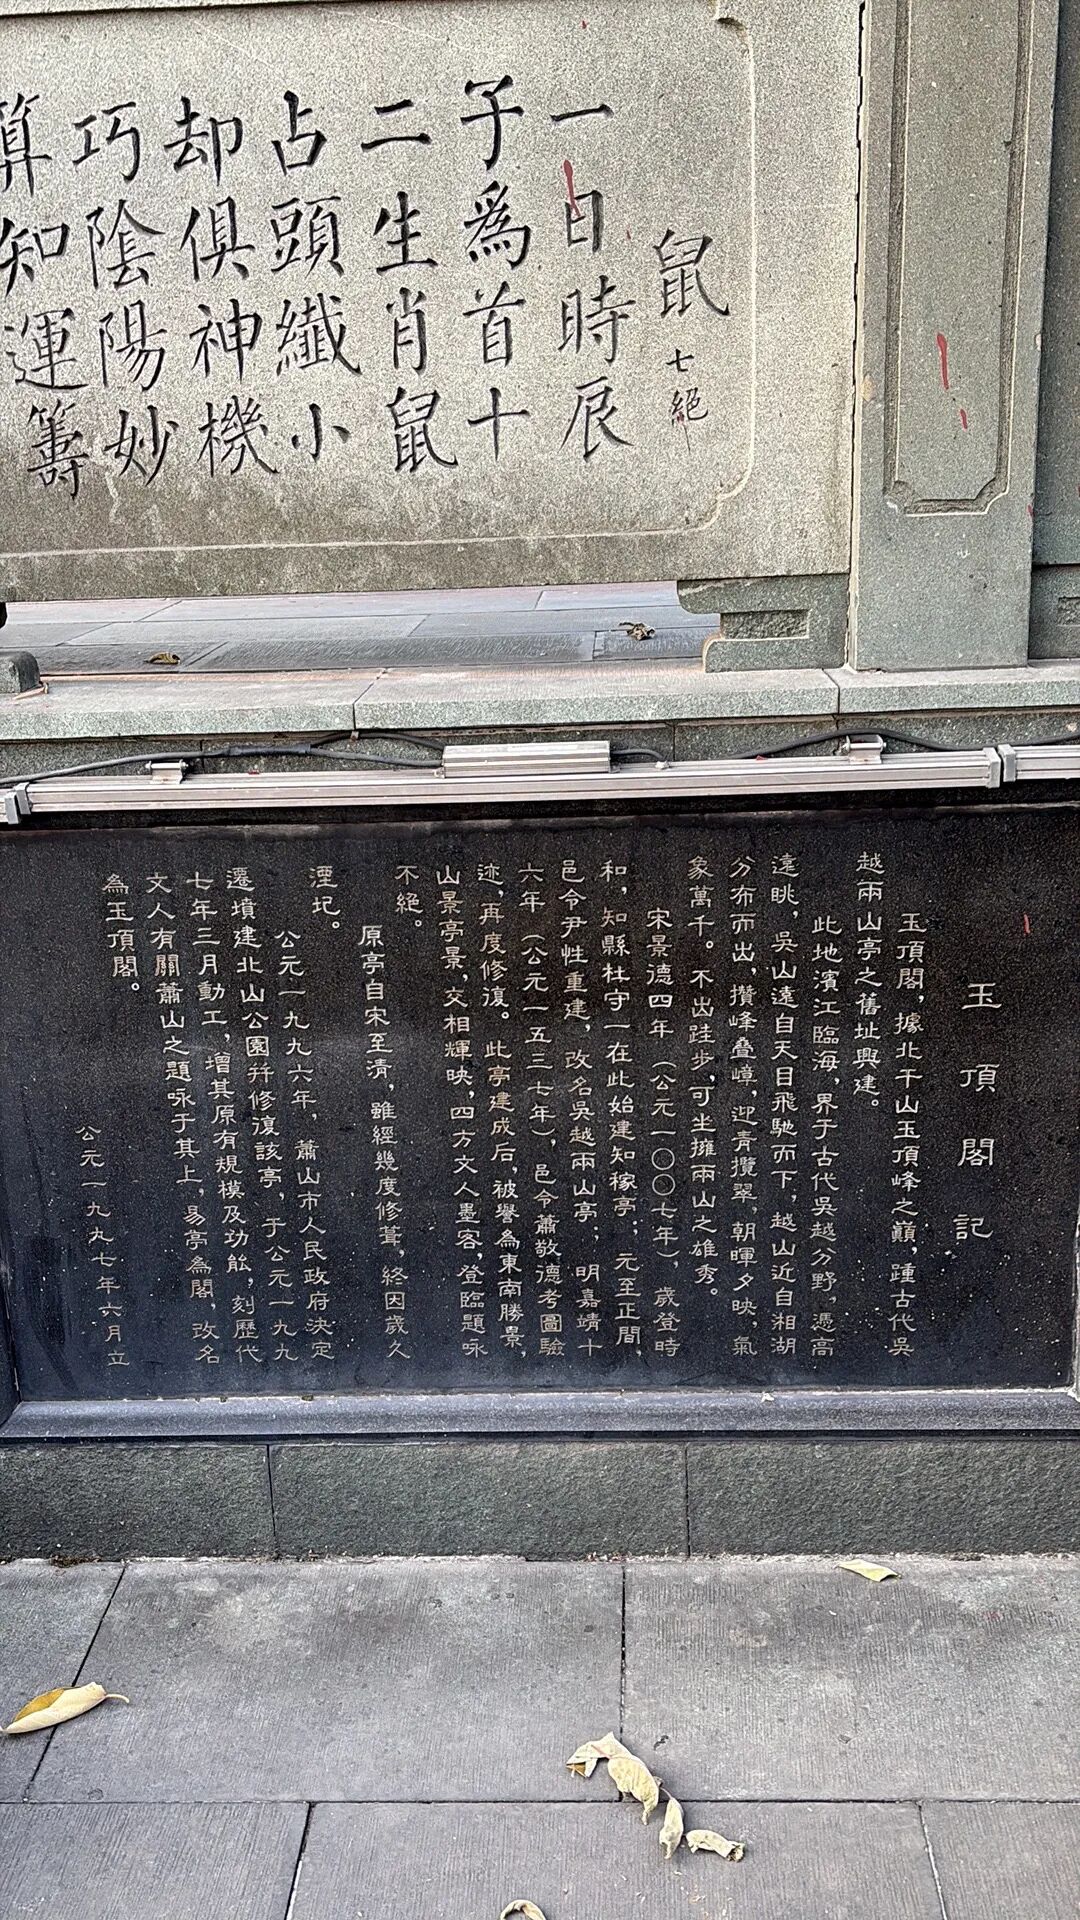 鼠 七絕
一日時辰
子為首十
二生肖鼠
占頭纖小
却俱神機
巧陰陽妙
算知運籌
玉頂閣記
玉頂閣，據北干山玉頂峰之巔，踵古代吳
越兩山亭之舊址興建。
此地濱江臨海，界于古代吳越分野，憑高
遠眺，吳山遠自天目飛馳而下，越山近自湘湖
分布而出，攢峰叠嶂，迎青攬翠，朝暉夕映，氣
象萬千。不出跬步，可坐擁兩山之雄秀。
宋景德四年（公元一〇〇七年），歲登時
和，知縣杜守一在此始建知稼亭；元至正間，
邑令尹性重建，改名吳越兩山亭；明嘉靖十
六年（公元一五三七年），邑令蕭敬德考圖驗
迹，再度修復。此亭建成后，被譽為東南勝景，
山景亭景，交相輝映，四方文人墨客，登臨題咏
不絕。
原亭自宋至清，雖經幾度修葺，終因歲久
湮圮。
公元一九九六年，蕭山市人民政府決定
遷墳建北山公園幷修復該亭，于公元一九九
七年三月動工，增其原有規模及功能，刻歷代
文人有關蕭山之題咏于其上，易亭為閣，改名
為玉頂閣。
公元一九九七年六月立